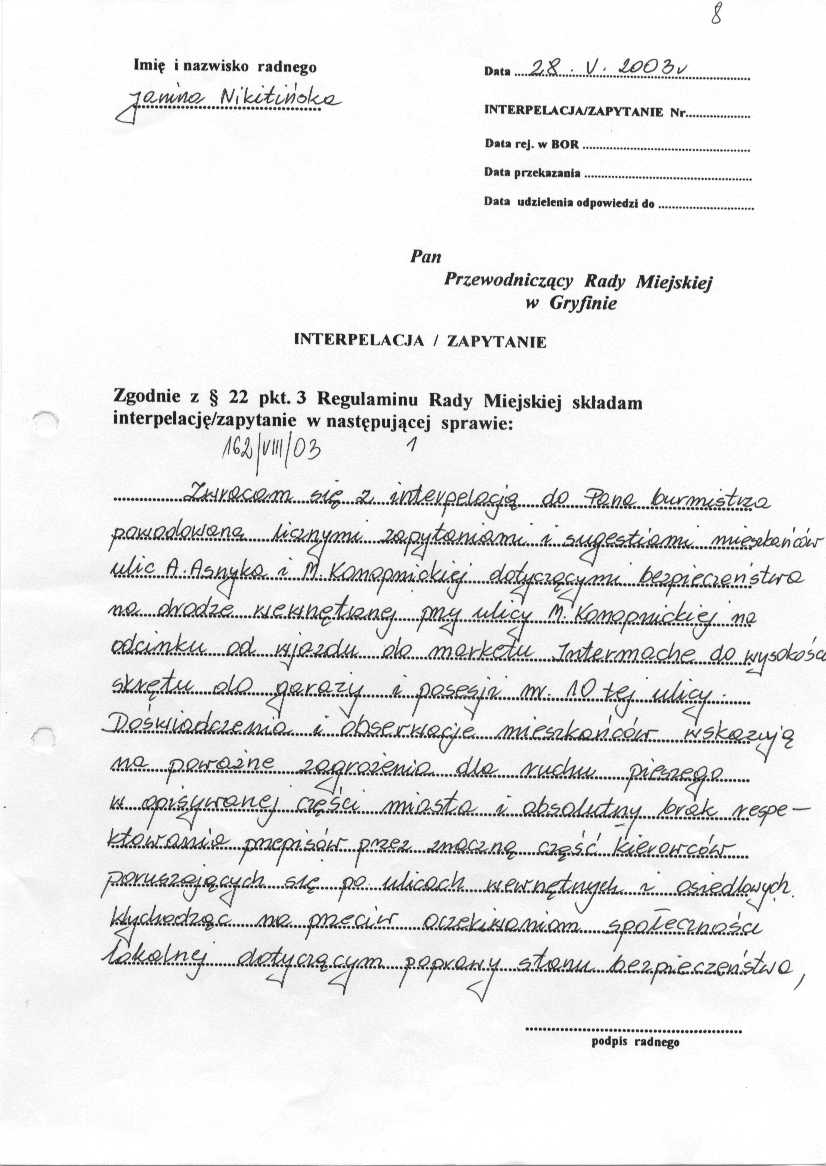 8
Imię i nazwisko radnego
Janina Nikitińska
Data 28. V. 2003r
INTERPELACJA/ZAPYTANIE Nr
Data rej. w BOR
Data przekazania
Data udzielenia odpowiedzi do
Pan
Przewodniczący Rady Miejskiej
w Gryfinie
INTERPELACJA / ZAPYTANIE
Zgodnie z § 22 pkt. 3 Regulaminu Rady Miejskiej składam
interpelację/zapytanie w następującej sprawie:
162/VIII/03 1
Zwracam się z interpelacją do Pana burmistrza
powodowana licznymi zapytaniami i sugestiami mieszkańców
ulic A. Asnyka i M. Konopnickiej dotyczącymi bezpieczeństwa
na drodze wewnętrznej przy ulicy M. Konopnickiej na
odcinku od wjazdu do marketu Intermache do wysokości
skrętu do garaży i posesji nr. 10 tej ulicy.
Doświadczenia i obserwacje mieszkańców wskazują
na poważne zagrożenia dla ruchu pieszego
w opisywanej części miasta i absolutny brak respe–
ktowania przepisów przez znaczną część kierowców
poruszających się po ulicach wewnętrznych i osiedlowych.
Wychodząc na przeciw oczekiwaniom społeczności
lokalnej dotyczącym poprawy stanu bezpieczeństwa,
podpis radnego